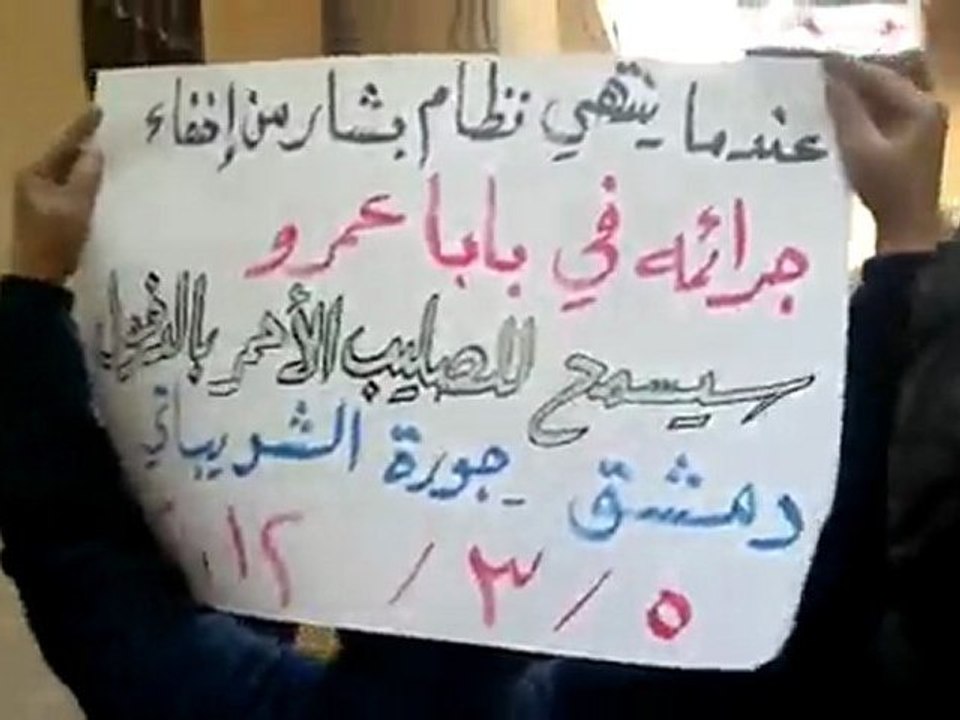 عندما ينتهي نظام بشار من إخفاء
جرائمه في بابا عمرو
سيسمح للصليب الأحمر بالدخول
دمشق - جورة الشريباتي
٥ / ٣ / ٢٠١٢